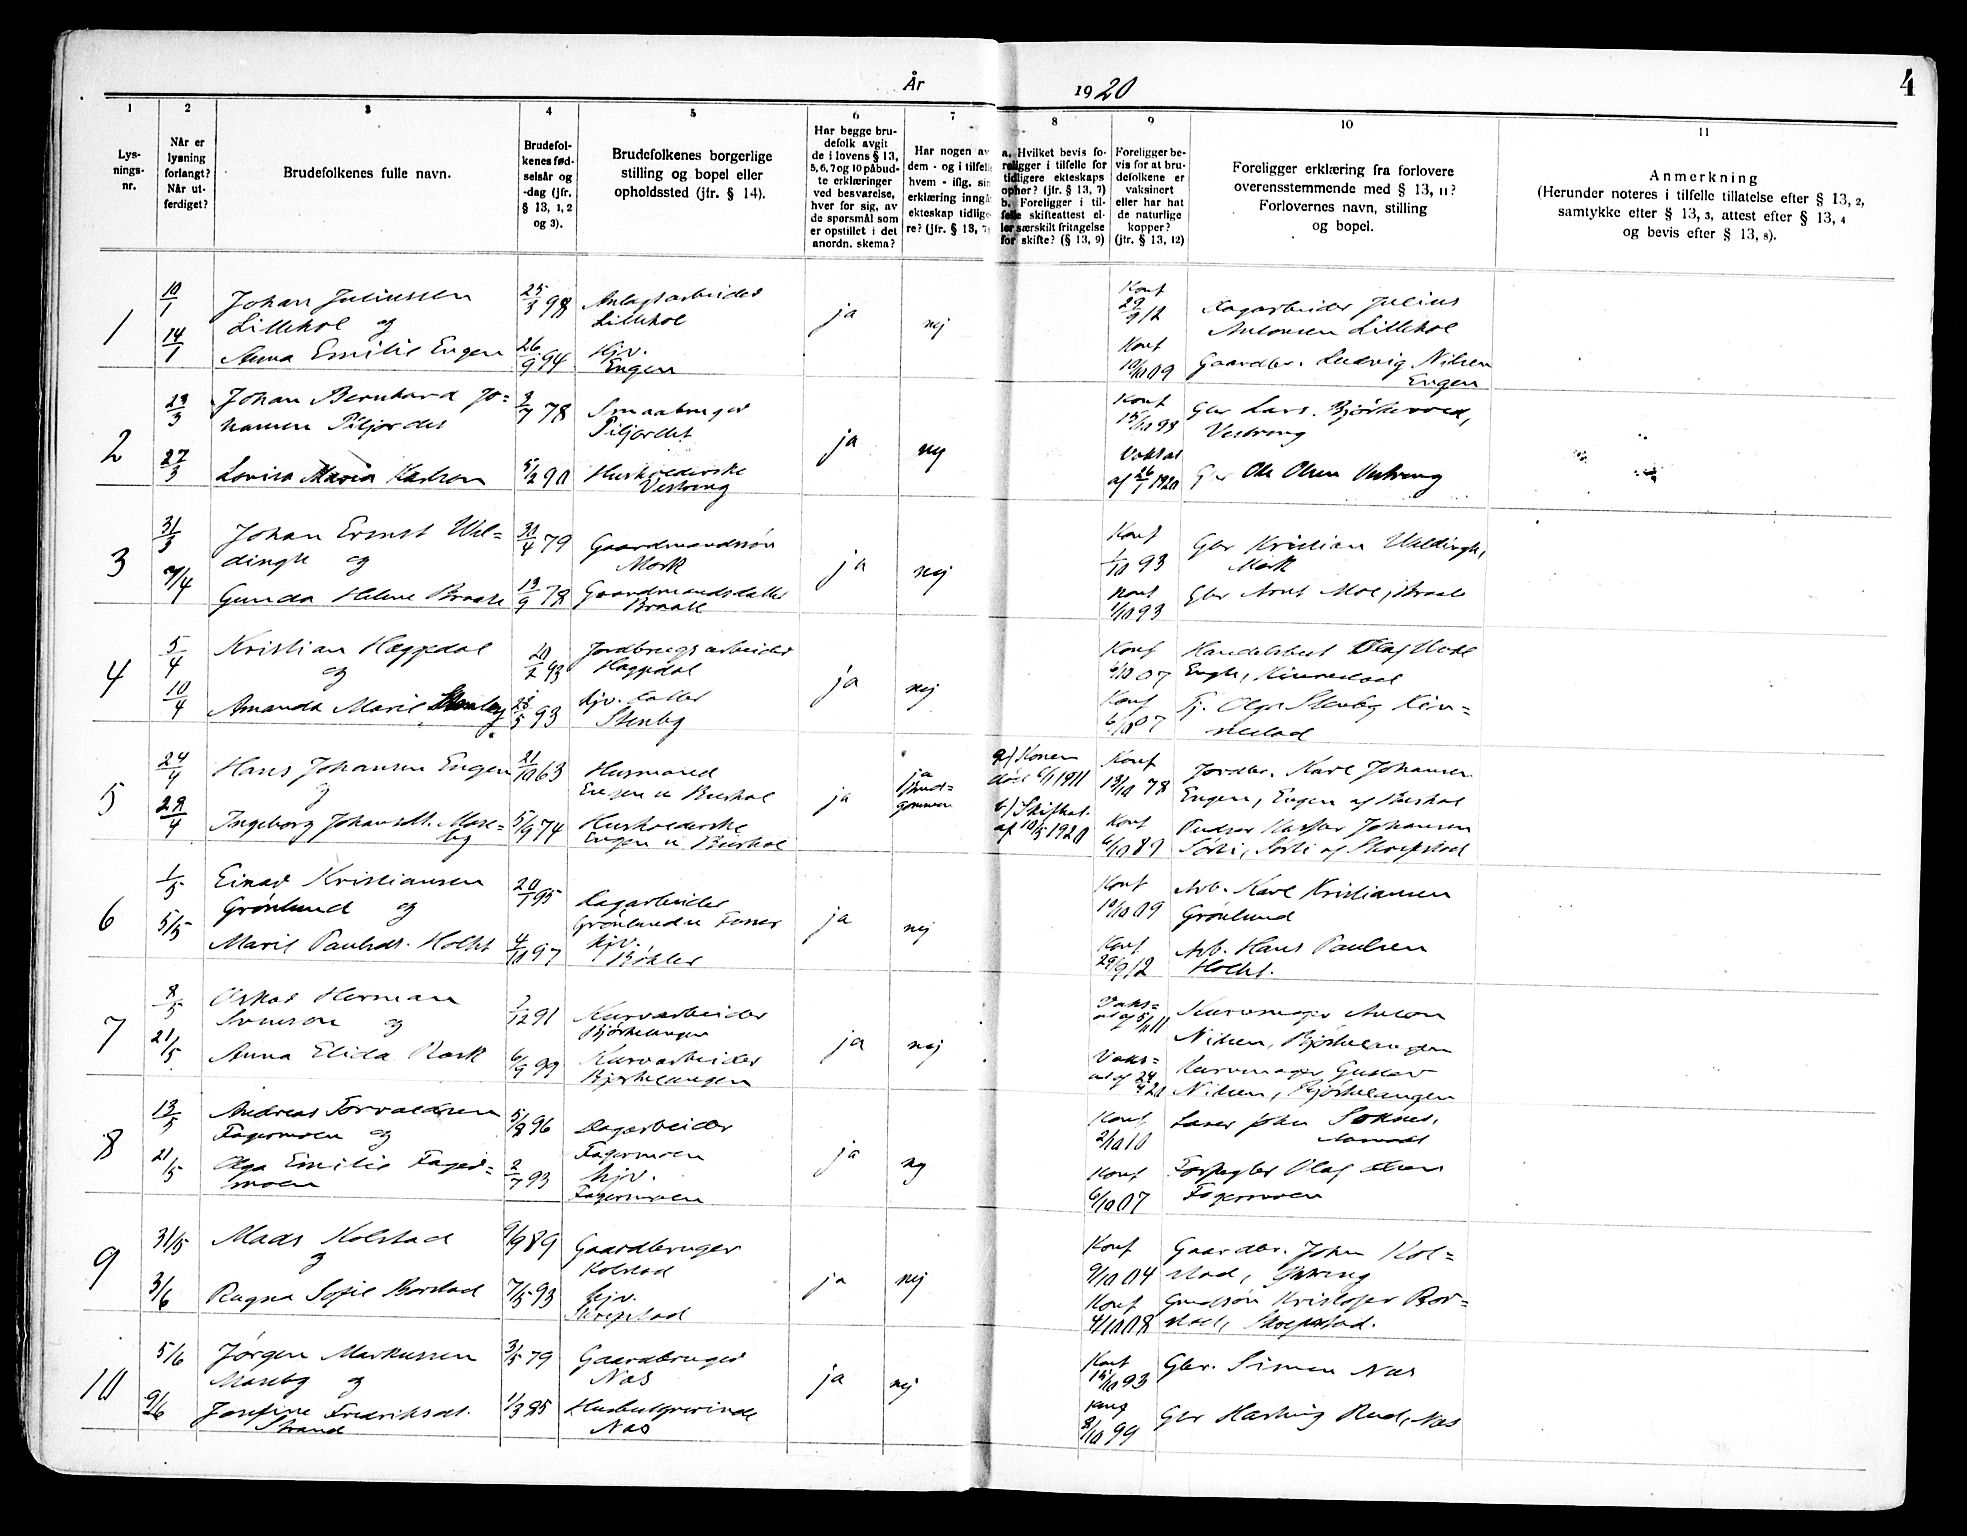 År 1920
4
1
2
3
4
5
6
7
8
9
10
11
Lysningsnr.
Når er lysning forlangt? Når utferdiget?
Brudefolkenes fulle navn.
Brudefolkenes fødselsår og -dag (jfr. § 13, 1, 2 og 3).
Brudefolkenes borgerlige stilling og bopel eller opholdssted (jfr. § 14).
Har begge brudefolk avgit de i lovens § 13, 5, 6, 7 og 10 påbudte erklæringer ved besvarelse, hver for sig, av de spørsmål som er opstillet i det anordn. skema?
Har nogen av dem - og i tilfelle hvem - iflg. sin erklæring inngå ekteskap tidligere? (jfr. § 13, 7)
a. Hvilket bevis foreligger i tilfelle for tidligere ekteskaps ophør? (jfr. § 13, 7)
b. Foreligger i tilfelle skifteattest eller særskilt fritagelse for skifte? (§ 13, 9)
Foreligger bevis for at brudefolkene er vaksinert eller har hat de naturlige kopper? (jfr. § 13, 12)
Foreligger erklæring fra forlovere overensstemmende med § 13, 11? Forlovernes navn, stilling og bopel.
Anmerkning
(Herunder noteres i tilfelle tillatelse efter § 13, 2, samtykke efter § 13, 3, attest efter § 13, 4 og bevis efter § 13, 8).
1
10/1
Johan Juliussen
25/3 98
Anlagsarbeider
Lillehol og
Lillehol
14/1
Anna Emilie Engen
26/9 94
Hjv.
Engen
ja
nej
Konf 29/9 12
Dagarbeider Julius
Antonsen Lillehol
Konf 10/10 09
Gaardbr. Ludvig Nilsen
Engen
2
23/3
Johan Bernhard Jo=
3/7 78
Smaabruger
hansen Piljordet
Piljordet
27/3
Lovisa Maria Karlson
5/2 90
Husholderske
Vestreng
ja
nej
Konf 15/10 93
Gbr Lars Bjørkevold,
Vestreng
Vaksat af 26/1 1920
Gbr Ole Olsen Vestreng
3
31/3
Johan Ernst Wel=
21/4 79
Gaardmandssøn
dingh og
Mork
7/4
Gunda Helene Braate
13/9 78
Gaardmandsdatter
Braate
ja
nej
Konf 1/10 93
Gbr Kristian Weldingh,
Mork
Konf 1/10 93
Gbr Arnt Moe, Braate
4
5/4
Kristian Hæggedal
20/2 93
Jordbrugsarbeider
og
Haggedal
10/4
Amanda Marie Stenby
28/5 93
Hjv. datter
Stenby
ja
nej
Konf 6/10 07
Handelsbest Olaf
Engh,
Konf 6/10 07
Tj. Olga Stenby
5
24/4
Hans Johansen Engen
21/10 63
Husmand
og
Engen u Bushol
28/4
Ingeborg Johansdt. Mose=
by
5/9 74
Husholderske
Engen u Bushol
ja
ja
Brud=
gommen
a) Konen
død 6/1 1911
b) Skifteat.
af 10/5 1920
Konf 13/10 78
Jordbr. Karl Johansen
Engen, Engen af Bushol
Konf 6/10 89
Johansen
Sørli, Sørli af Skrepstad
6
1/5
Einar Kristiansen
20/1 95
Dagarbeider
Grönlund og
Grönlund u Fosser
5/5
Marie Paulsdt. Holht
4/10 97
Hjv.
Bøhler
ja
nej
Konf 10/10 09
Arb. Karl Kristiansen
Grönlund
Konf 29/9 12
Arb. Hans Paulsen
Holht.
7
8/5
Oskar Herman
7/12 91
Kurvarbeider
Svenson og
Bjørkelangen
21/5
Anna Elida Rask
6/9 99
Kurvarbeider
Bjørkelangen
ja
nej
Vaks=
at af 5/11
Kurvmager Anton
Nilsen, Bjørkelangen
Vaks=
at af 24/4 20
Kurvmager Gustav
Nilsen, Bjørkelangen
8
13/5
Andreas Torvaldsen
5/8 96
Dagarbeider
Fagermoen og
Fagermoen
21/5
Olga Emilie Fager=
moen
2/7 93
Hjv.
Fagermoen
ja
nej
Konf 2/10 10
John Soknes,
Konf 6/10 07
Olaf
Fagermoen
9
31/5
Mads Kolstad
9/9 89
Gaardbruger
og
Kolstad
3/6
Ragna Sofie Borstad
7/5 93
Hjv.
Skrepstad
ja
nej
Konf 9/10 04
Gaardbr. John Kol=
stad,
Konf 4/10 08
Grmdsøn Kristofer Bor=
stad, Skrepstad.
10
5/6
Jørgen Markussen
3/5 79
Gaardbruger
Moseby og
Nas
9/6
Josefine Fredriksdt.
Strand
1/3 85
Husbestyrerinde
Nas
ja
nej
Konf 15/10 93
Gbr. Simen Nas
Konf 8/10 99
Gbr Hartvig Rud, Nas